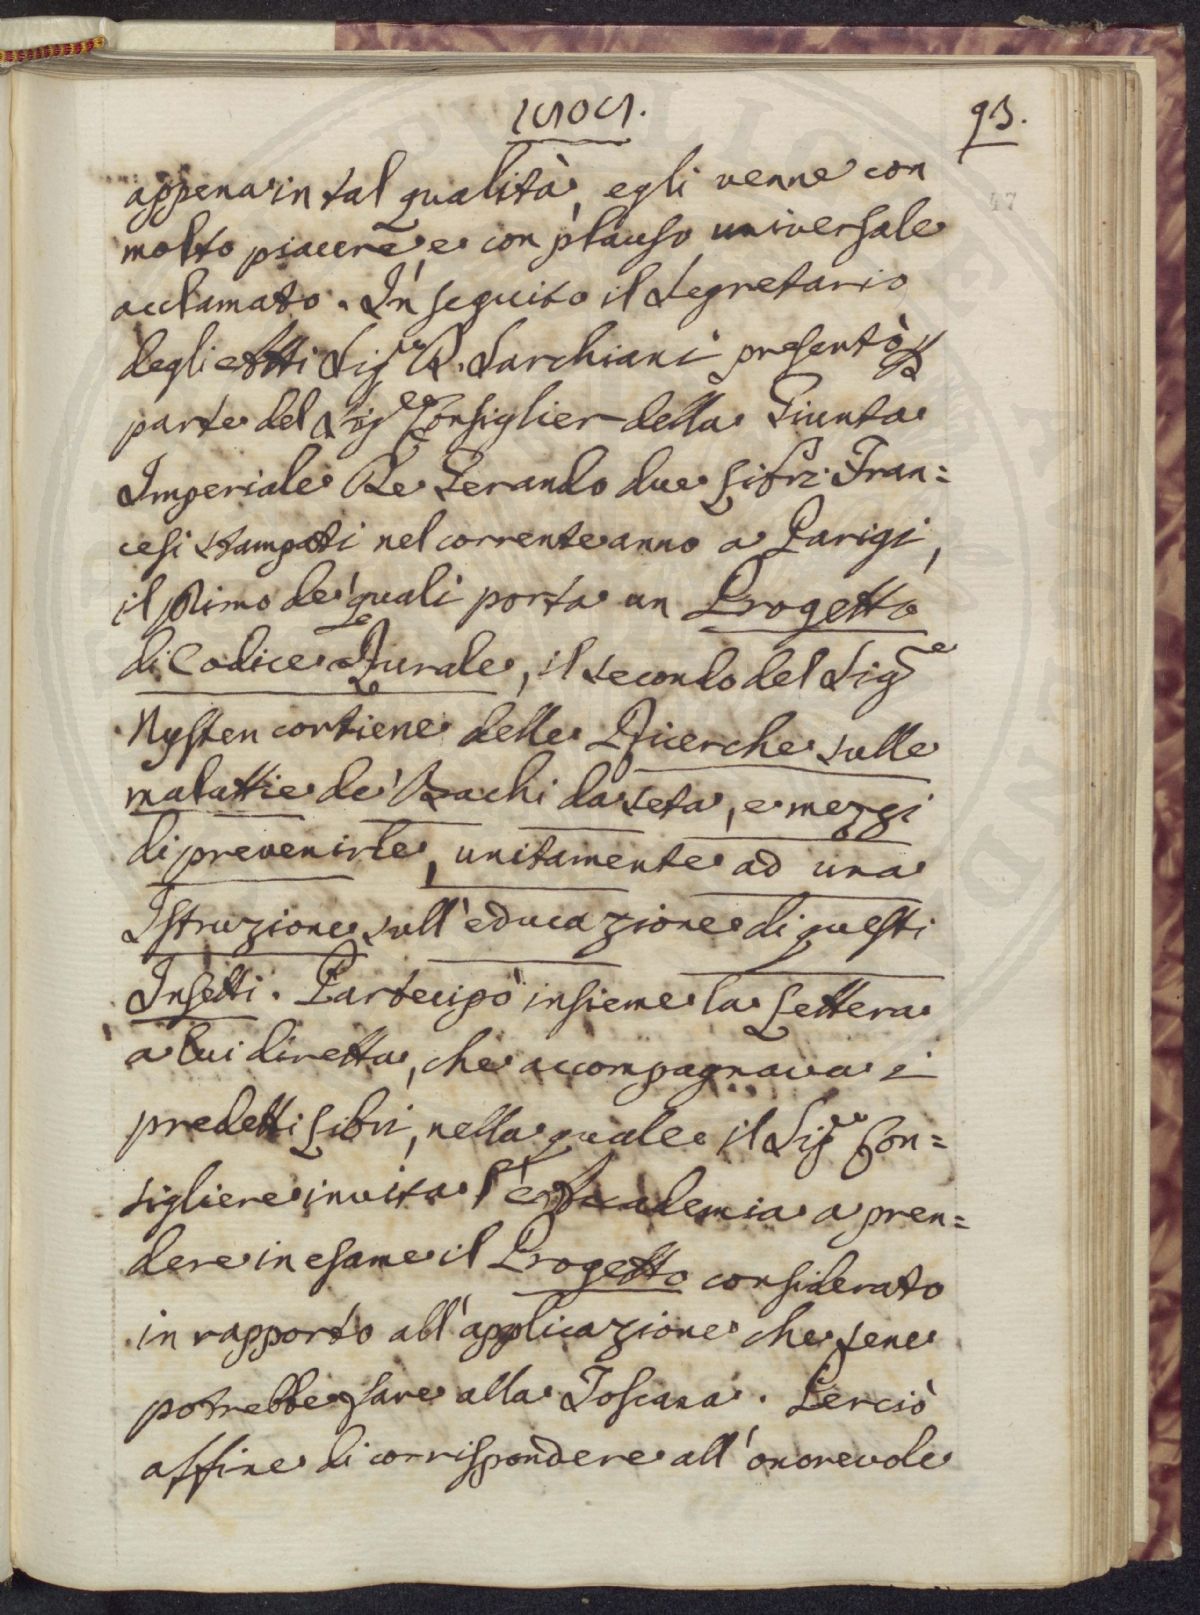 1808.
93.
appena in tal qualità, egli venne con
molto piacere e con plauso universale
acclamato. In seguito il Segretario
degli Atti Sig.re R. Sarchiani presentò p
parte del Sig.re Consiglier della Giunta
Imperiale De Gerando due Libri Fran=
cesi stampati nel corrente anno a Parigi,
il primo de' quali porta un Progetto
di Codice Rurale, il secondo del Sig.re
Nysten contiene delle Ricerche sulle
malattie de' Bachi da seta, e mezzi
di prevenirle, unitamente ad una
Istruzione sull'educazione di questi
Insetti. Partecipò insieme la Lettera
a lui diretta, che accompagnava i
predetti Libri, nella quale il Sig.re Con=
sigliere invita l'Accademia a pren=
dere in esame il Progetto considerato
in rapporto all'applicazione che sene
potrebbe fare alla Toscana. Perciò
affine di corrispondere all'onorevole